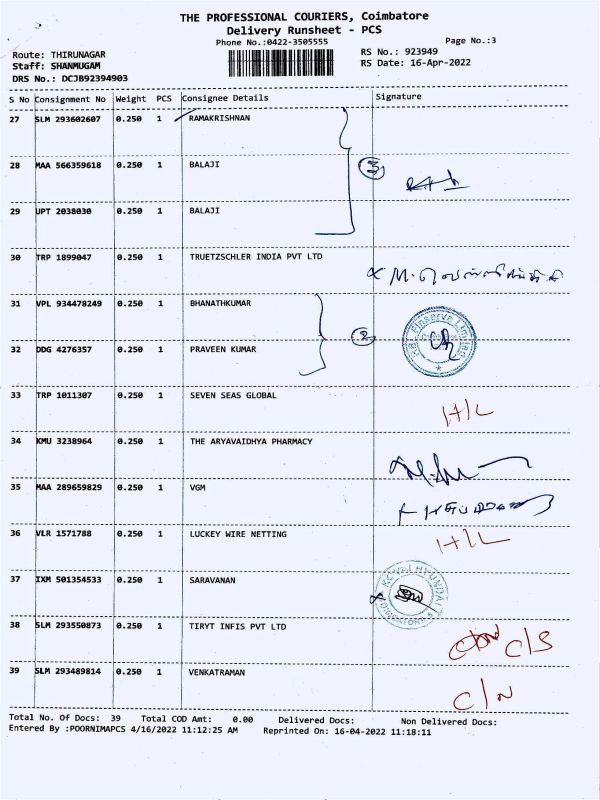 THE PROFESSIONAL COURIERS, Coimbatore
Delivery Runsheet - PCS
Phone No.:0422-3505555
Page No.:3
Route: THIRUNAGAR
Staff: SHANMUGAM
DRS No.: DCJB92394903
RS No.: 923949
RS Date: 16-Apr-2022
S No Consignment No Weight PCS Consignee Details Signature
27 SLM 293602607 0.250 1 RAMAKRISHNAN
28 MAA 566359618 0.250 1 BALAJI
3
29 UPT 2038030 0.250 1 BALAJI
30 TRP 1899047 0.250 1 TRUETZSCHLER INDIA PVT LTD
31 VPL 934478249 0.250 1 BHANATHKUMAR
2
32 DDG 4276357 0.250 1 PRAVEEN KUMAR
33 TRP 1011307 0.250 1 SEVEN SEAS GLOBAL
H/L
34 KMU 3238964 0.250 1 THE ARYAVAIDHYA PHARMACY
35 MAA 289659829 0.250 1 VGM
36 VLR 1571788 0.250 1 LUCKEY WIRE NETTING
H/L
37 IXM 501354533 0.250 1 SARAVANAN
38 SLM 293550873 0.250 1 TIRYT INFIS PVT LTD
C/S
39 SLM 293489814 0.250 1 VENKATRAMAN
C/N
Total No. Of Docs: 39 Total COD Amt: 0.00 Delivered Docs: Non Delivered Docs:
Entered By :POORNIMAPCS 4/16/2022 11:12:25 AM Reprinted On: 16-04-2022 11:18:11